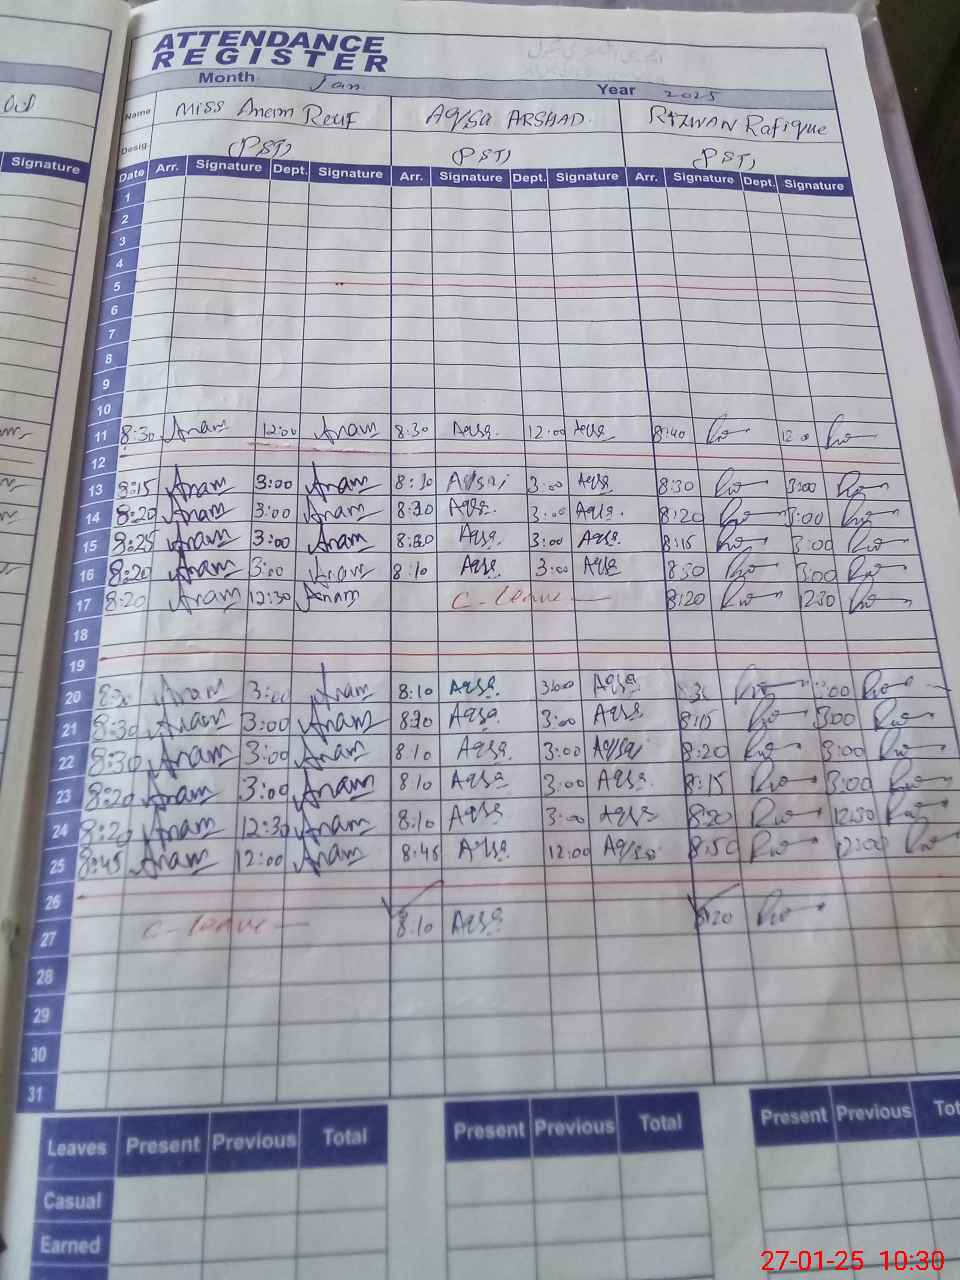 ATTENDANCE
REGISTER
Month Jan Year 2025
Name Miss Anam Rauf AQSA ARSHAD. RIZWAN Rafique
Desig. (PST) (PST) (PST)
Signature Date Arr. Signature Dept. Signature Arr. Signature Dept. Signature Arr. Signature Dept. Signature
1
2
3
4
5
6
7
8
9
10
11 8:30 Anam 12:00 Anam 8:30 Aqsa 12:00 Aqsa 8:40 12:00
12
13 8:15 Anam 3:00 Anam Aqsa 3:00 Aqsa 8:30 3:00
14 8:20 Anam 3:00 Anam Aqsa 3:00 Aqsa 8:20 3:00
15 8:25 Anam 3:00 Anam Aqsa 3:00 Aqsa 8:15 3:00
16 8:20 Anam 3:00 Anam 8:10 Aqsa 3:00 Aqsa 3:00
17 8:20 Anam 12:30 Anam C-leave 8:20 1230
18
19
20 Anam 3:00 Anam 8:10 Aqsa 3:00 Aqsa 3:00
21 8:30 Anam 3:00 Anam Aqsa 3:00 Aqsa 8:15 3:00
22 8:30 Anam 3:00 Anam 8:10 Aqsa 3:00 Aqsa 8:20 3:00
23 8:20 Anam 3:00 Anam 8:10 Aqsa 3:00 Aqsa 8:15 3:00
24 8:20 Anam 12:30 Anam 8:10 Aqsa 3:00 Aqsa 8:20 1230
25 8:45 Anam 12:00 Anam 8:45 Aqsa 12:00 Aqsa 8:50 12:00
26
27 C-leave 8:10 Aqsa 8:20
28
29
30
31
Leaves Present Previous Total Present Previous Total Present Previous
Casual
Earned
27-01-25 10:30